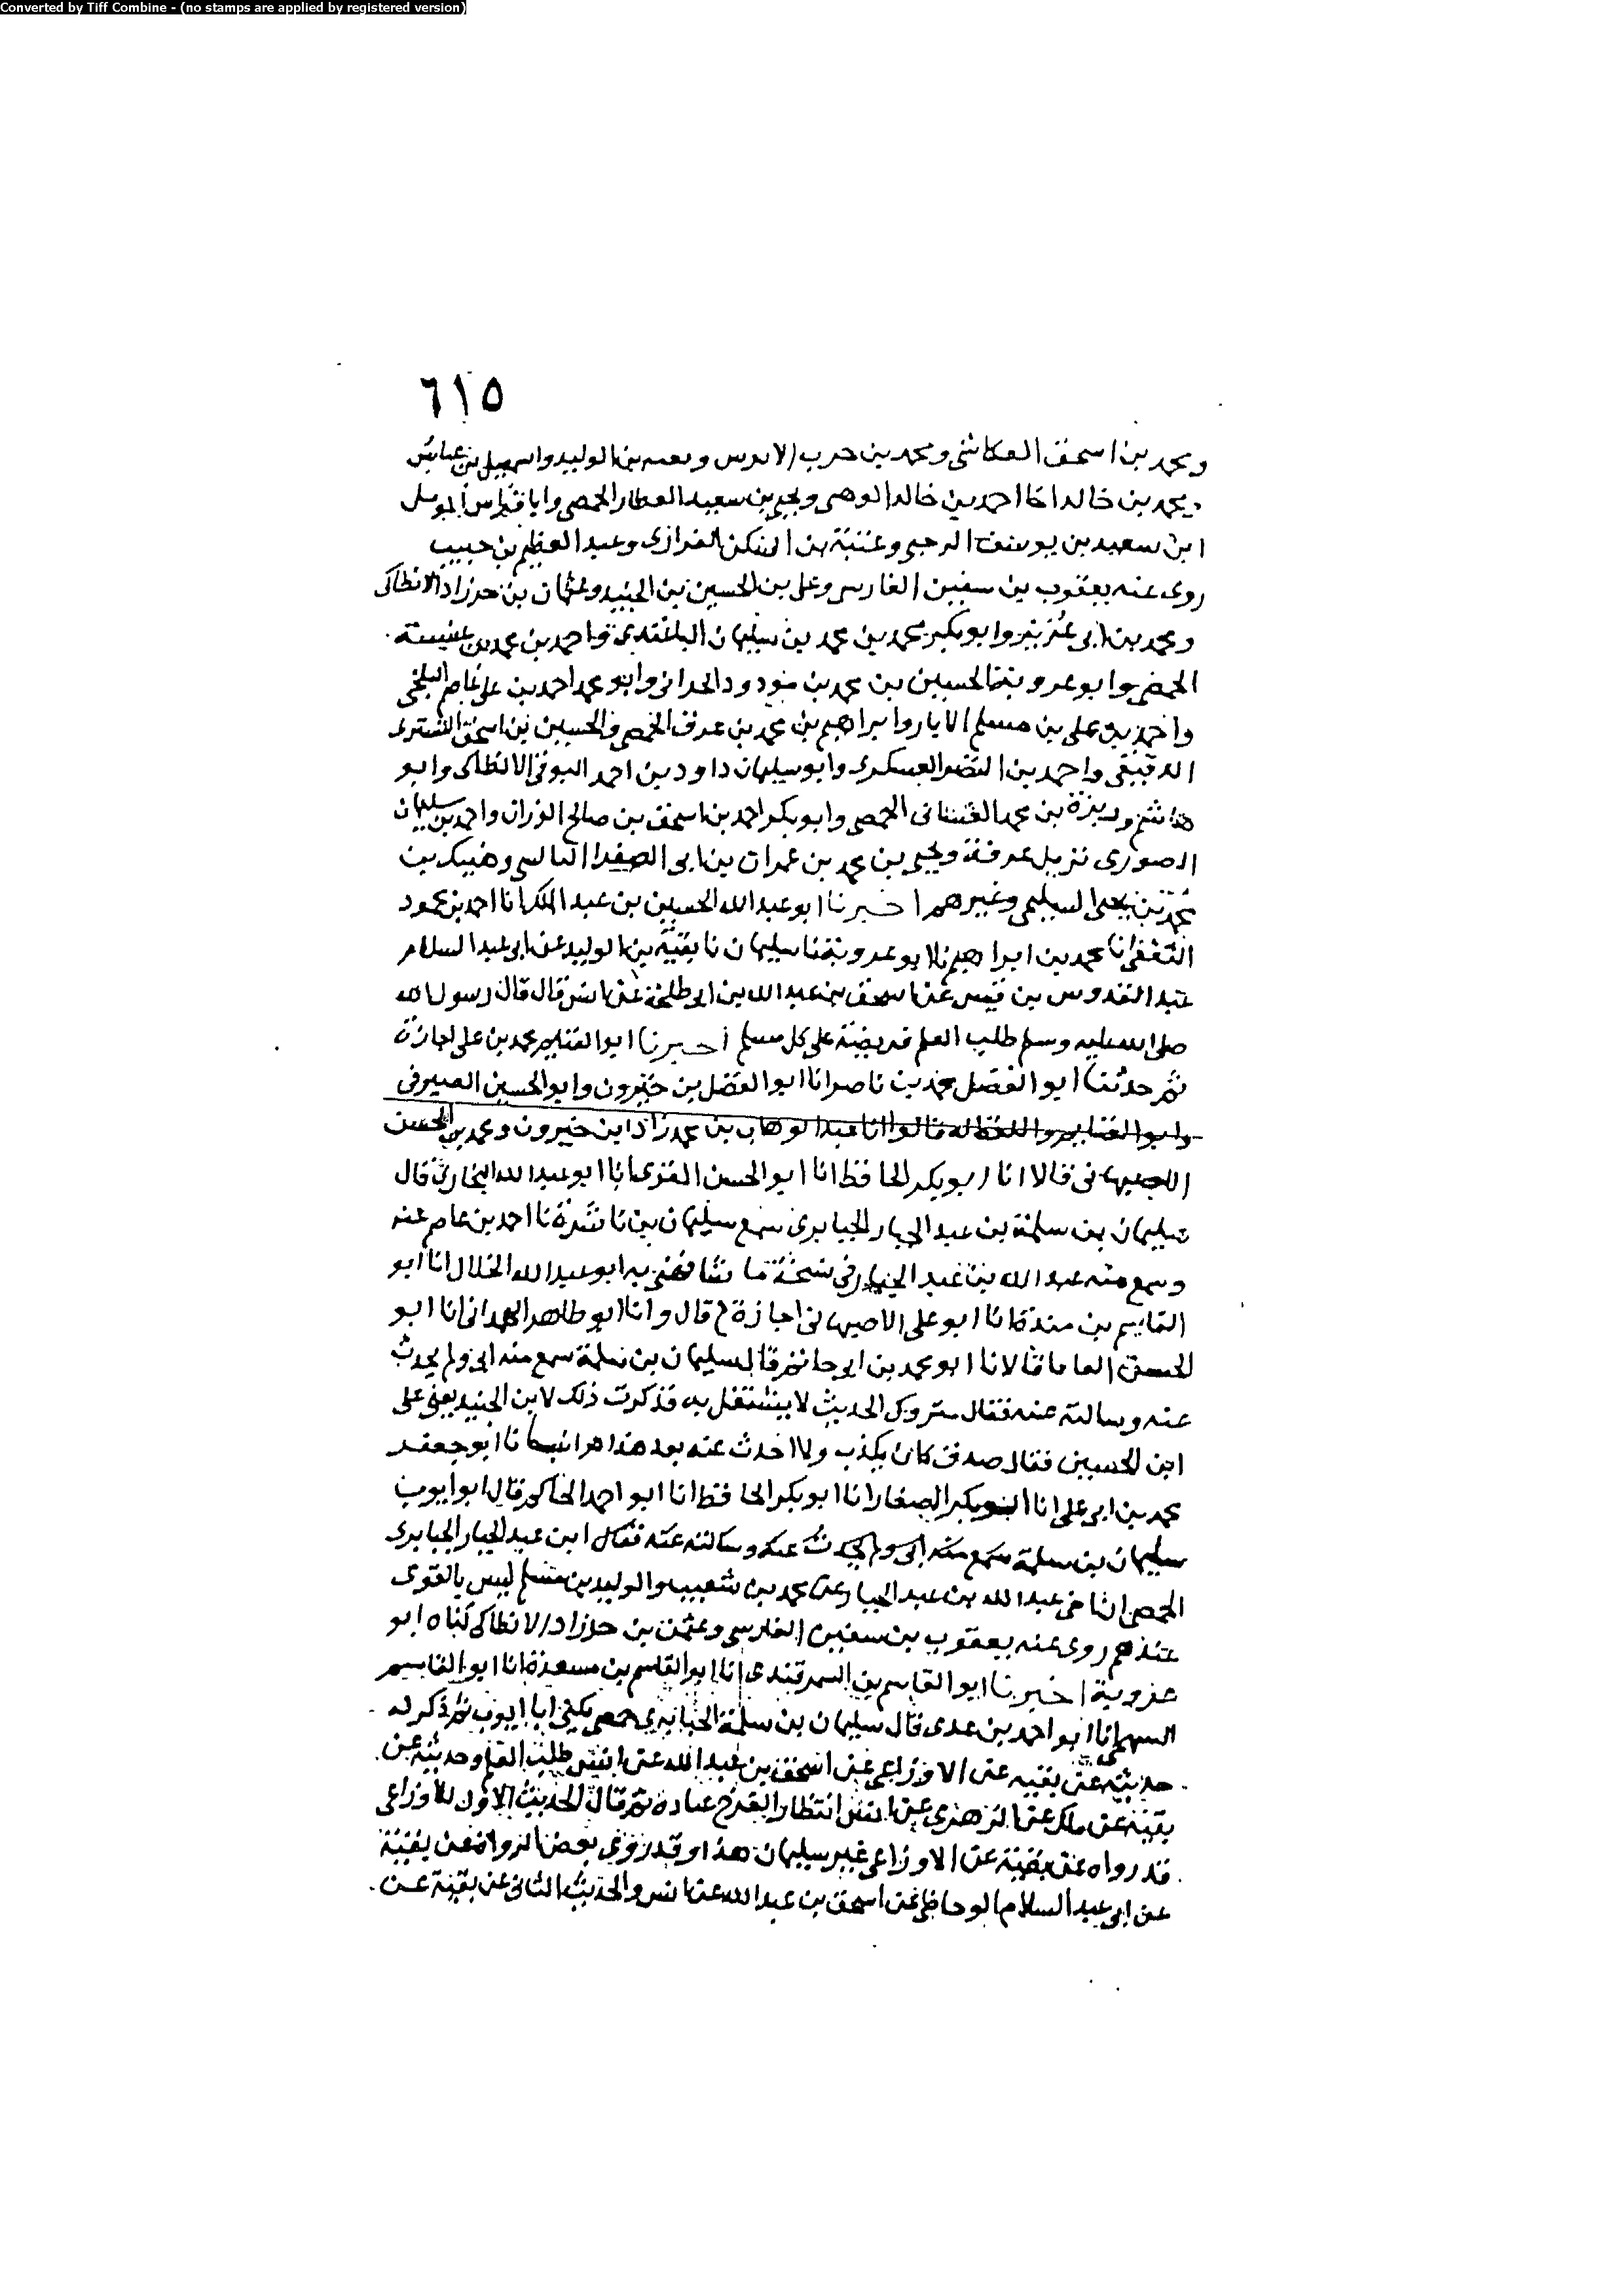 Converted by Tiff Combine - (no stamps are applied by registered version)
٦١٥
ومحمد بن اسحق العكاشي ومحمد بن حرب الابرس وبقيه بن الوليد واسمعيل بن عياش
ومحمد بن خالد اخا احمد بن خالد الوهبي ويحيى بن سعيد العطار الحمصي وابا فراس المومل
ابن سعيد بن يوسف الرحبي وعتبة بن السكن الفزاري وعبد العظيم بن حبيب
روى عنه يعقوب بن سفين الفارسي وعلى بن الحسين بن الجنيد وعثمان بن خرزاد الانطاكي
ومحمد بن ابي وابو بكر محمد بن محمد بن سليمان الباغندي واحمد بن محمد بن عنبسة
الحمصي وابو عروبة الحسين بن محمد بن مودود الحراني وابو محمد احمد بن على البلخي
واحمد بن على بن مسلم الابار وابراهيم بن محمد بن عرق الحمصي والحسين بن اسحق التسترى
الدقيقي واحمد بن النضر العسكري وابو سليمان داود بن احمد الانطاكي وابو
هاشم بن محمد الغساني الحمصي وابو بكر احمد بن اسحق بن صالح الوزان واحمد بن سليمان
الصورى نزيل عرفة ويحيى بن محمد بن عمران بن ابي البالسي بن
محمد بن يحيى السليمي وغيرهم اخبرنا ابو عبد الله الحسين بن عبد الملك انا احمد بن محمود
الثقفي انا محمد بن ابراهيم نا ابو عروبة نا سليمان نا بقية بن الوليد عن ابي عبد السلام
عبد القدوس بن عن اسحق بن عبد الله بن ابي طلحة عن انس قال قال رسول الله
صلى الله عليه وسلم طلب العلم فريضة على كل مسلم اخبرنا ابو الغنايم محمد بن على اجازة
ثم حدثنا ابو الفضل محمد بن ناصر انا ابو الفضل بن خيرون وابو الحسين الصيرفي
وابو الغنايم واللفظ له قالوا انا عبد الوهاب بن محمد زاد ابن خيرون ومحمد بن الحسن
الاصبهاني قالا انا ابو بكر الحافظ انا ابو الحسن المقرى انا ابو عبد الله البخاري قال
سليمان بن سلمة بن عبد الجبار الجبايري سمع سليمان بن ناشرة نا احمد بن عاصم عنه
وسمع منه عبد الله بن عبد الجبار في نسخة ما شافهني به ابو عبد الله الخلال انا ابو
القاسم بن مندة انا ابو على الاصبهاني اجازة ح قال وانا ابو طاهر الهمداني انا ابو
الحسن الفافا قالا انا ابو محمد بن ابي حاتم قال سليمان بن سلمة سمع منه ابي ولم يحدث
عنه وسالته عنه فقال متروك الحديث لا يشتغل به فذكرت ذلك لابن الجنيد يعني على
ابن الحسين فقال صدق كان يكذب ولا احدث عنه بعد هذا انا ابو جعفر
محمد بن ابي على انا ابو بكر الصفار انا ابو بكر الحافظ انا ابو احمد الحاكم قال ابو ايوب
سليمان بن سلمة سمع منه ابي ولم يحدث عنه وسالته عنه فقال ابن عبد الجبار الجبايري
الحمصي ابن اخي عبد الله بن عبد الجبار عن محمد بن شعيب والوليد بن مسلم ليس بالقوى
عندهم روى عنه يعقوب بن سفين الفارسي وعثمن بن خرزاد الانطاكي كناه ابو
عروبة اخبرنا ابو القاسم بن السمرقندى انا ابو القاسم بن مسعدة انا ابو القاسم
السهمي انا ابو احمد بن عدى قال سليمان بن سلمة الخبايري حمصي يكنى ابا ايوب ثم ذكر له
حديثه عن بقيه عن الاوزاعي عن اسحق بن عبد الله عن انس طلب العلم وحديثه عن
بقية عن ملك عن الزهري عن انس انتظار الفرج عبادة ثم قال الحديث الاول للاوزاعي
قد رواه عن بقية عن الاوزاعي غير سليمان هذا وقد روى بعض الرواة عن بقية
عن ابي عبد السلام الوحاظي عن اسحق بن عبد الله عن انس والحديث الثاني عن بقية عن